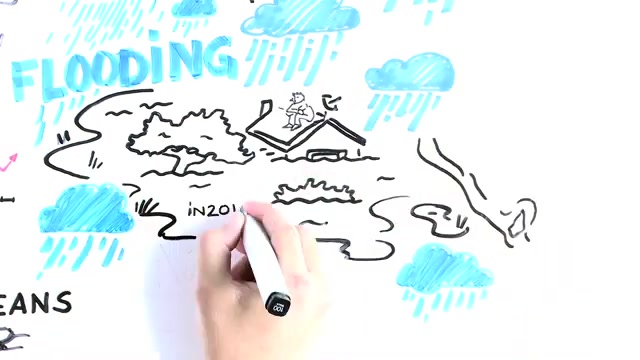 FLOODiNG
iN201
EANS